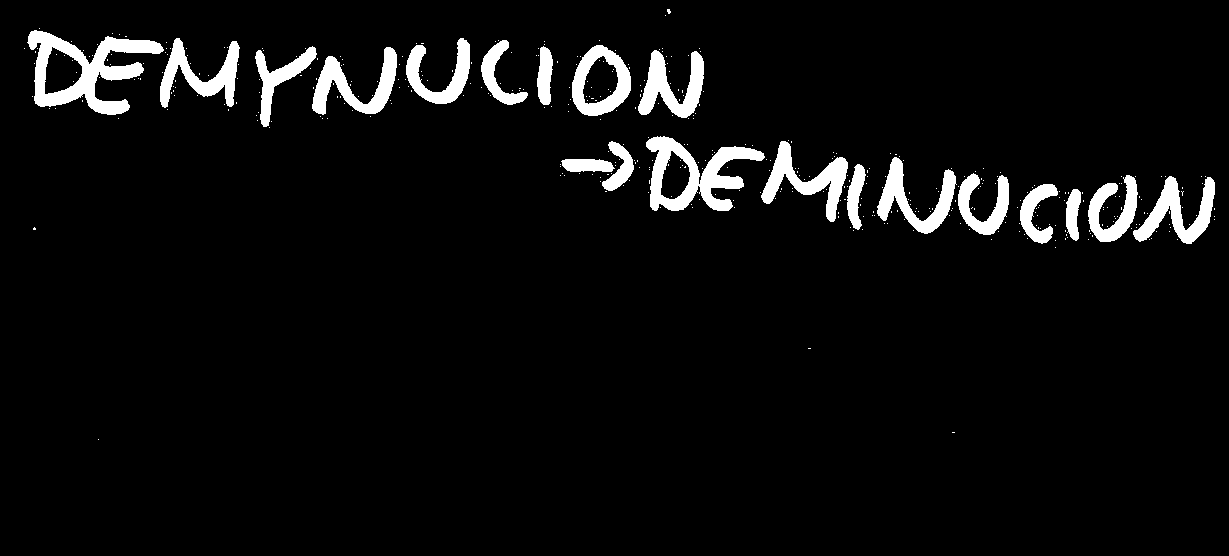 DEMYNUCION
→DEMINUCION